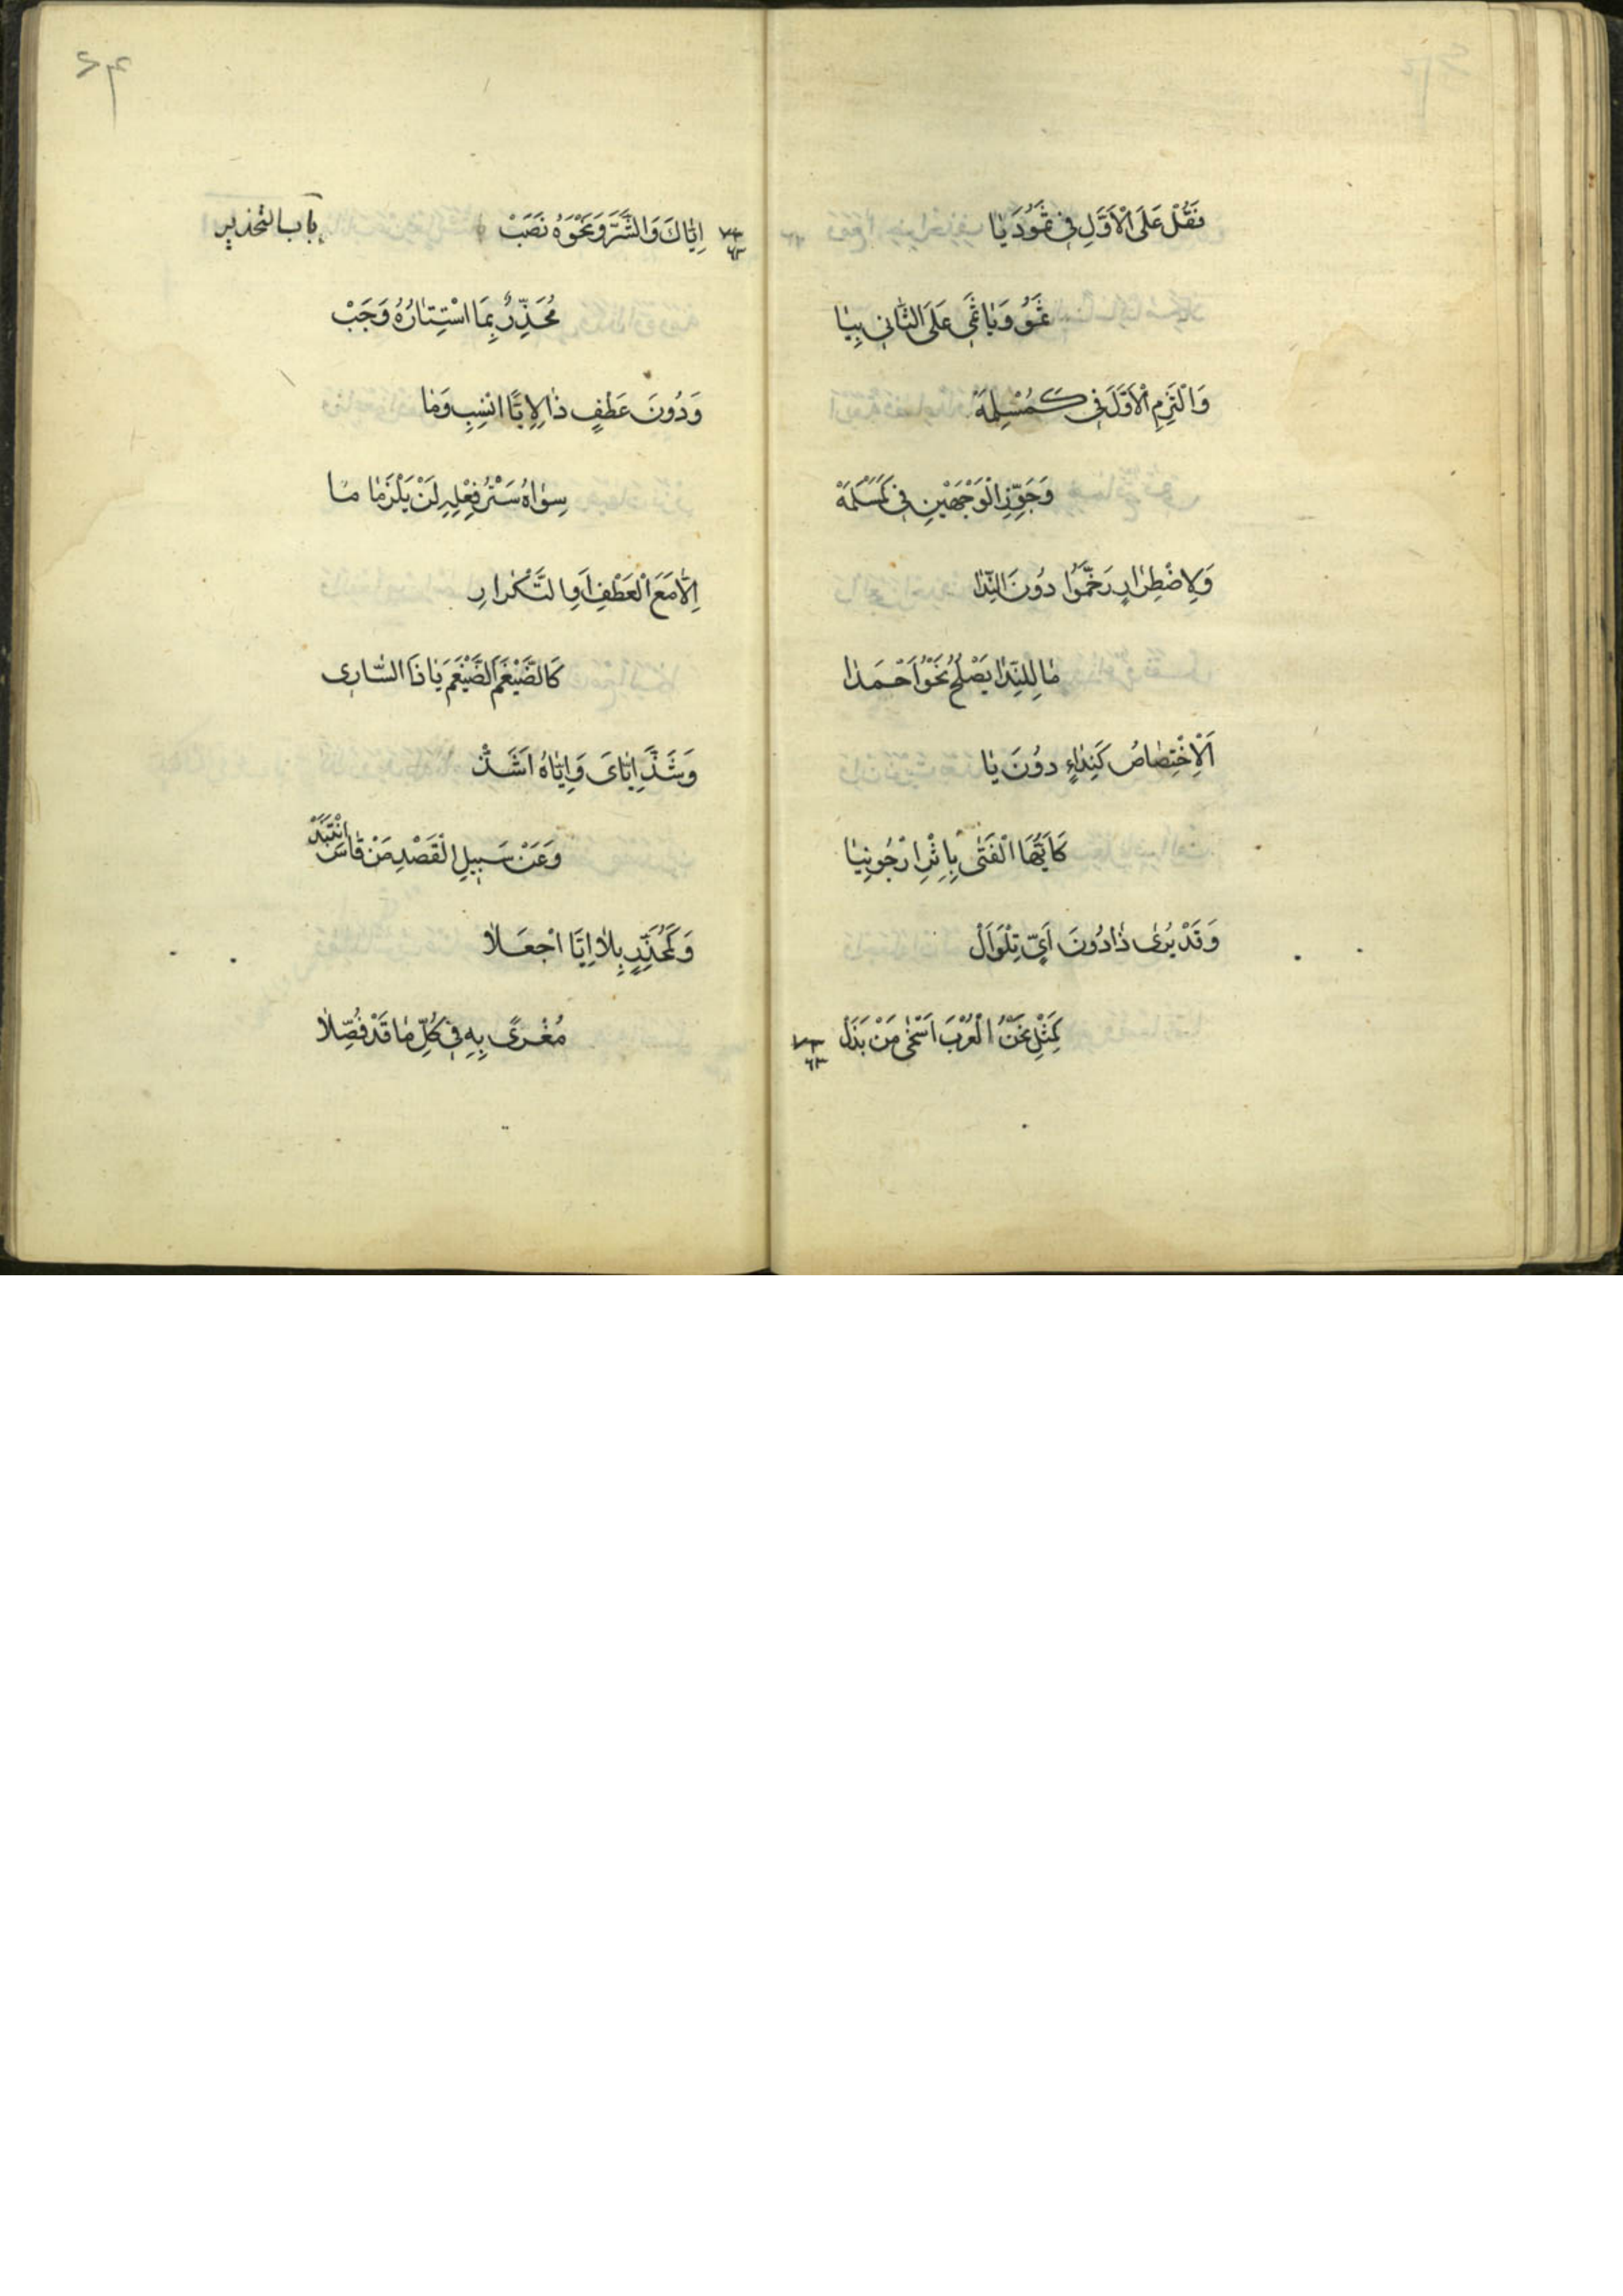 فَقُلْ عَلَى الْاَوَّلِ فِى ثَمُودَ يَا
ثَمُو وَيَا ثَمِى عَلَى الثَّانِى بِيَا
وَالْتَزِمِ الْاَوَّلَ فِى كَمُسْلِمَةْ
وَجَوِّزِ الْوَجْهَيْنِ فِى كَمَسْلَمَةْ
وَلِاضْطِرَارٍ رَخَّمُوا دُونَ النِّدَا
مَا لِلنِّدَا يَصْلُحُ نَحْوُ اَحْمَدَا
اَلْاِخْتِصَاصُ كَنِدَاءٍ دُونَ يَا
كَاَيُّهَا الْفَتَى بِاِثْرِ ارْجُونِيَا
وَقَدْ يُرَى ذَا دُونَ اَىٍّ تِلْوَ اَلْ
كَمِثْلِ نَحْنُ الْعُرْبَ اَسْخَى مَنْ بَذَلْ
باب التحذير
اِيَّاكَ وَالشَّرَّ وَنَحْوَهُ نَصَبْ
مُحَذِّرٌ بِمَا اسْتِتَارُهُ وَجَبْ
وَدُونَ عَطْفٍ ذَا لِاِيَّا انْسِبْ وَمَا
سِوَاهُ سَتْرُ فِعْلِهِ لَنْ يَلْزَمَا
اِلَّا مَعَ الْعَطْفِ اَوِ التَّكْرَارِ
كَالضَّيْغَمَ الضَّيْغَمَ يَا ذَا السَّارِى
وَشَذَّ اِيَّاىَ وَاِيَّاهُ اَشَذّْ
وَعَنْ سَبِيلِ الْقَصْدِ مَنْ قَاسَ انْتَبَذْ
وَكَمُحَذِّرٍ بِلَا اِيَّا اجْعَلَا
مُغْرًى بِهِ فِى كُلِّ مَا قَدْ فُصِّلَا